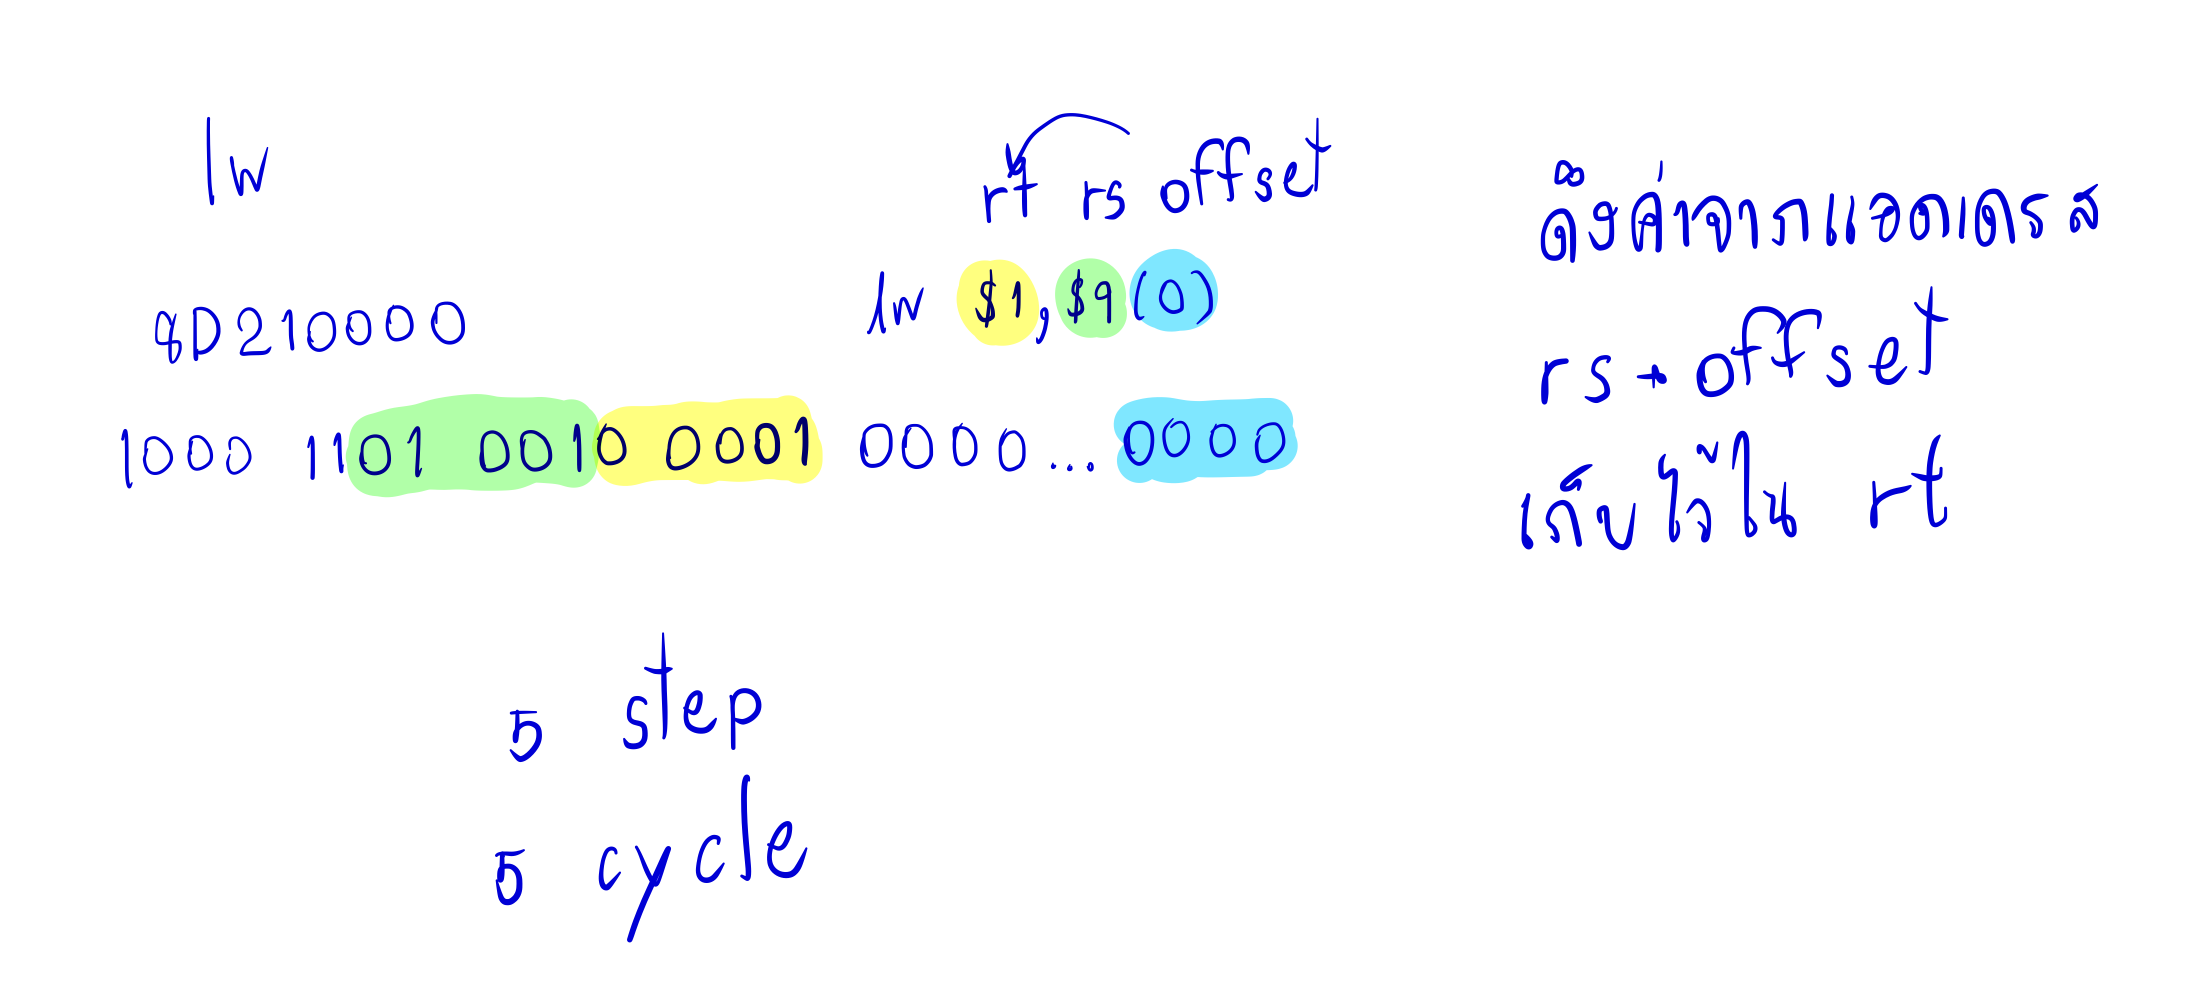 lw
rt rs offset
lw $1, $9(0)
8D210000
1000 1101 0010 0001 0000 ... 0000
ดึงค่าจากแอดเดรส
rs + offset
เก็บไว้ใน rt
5 step
5 cycle